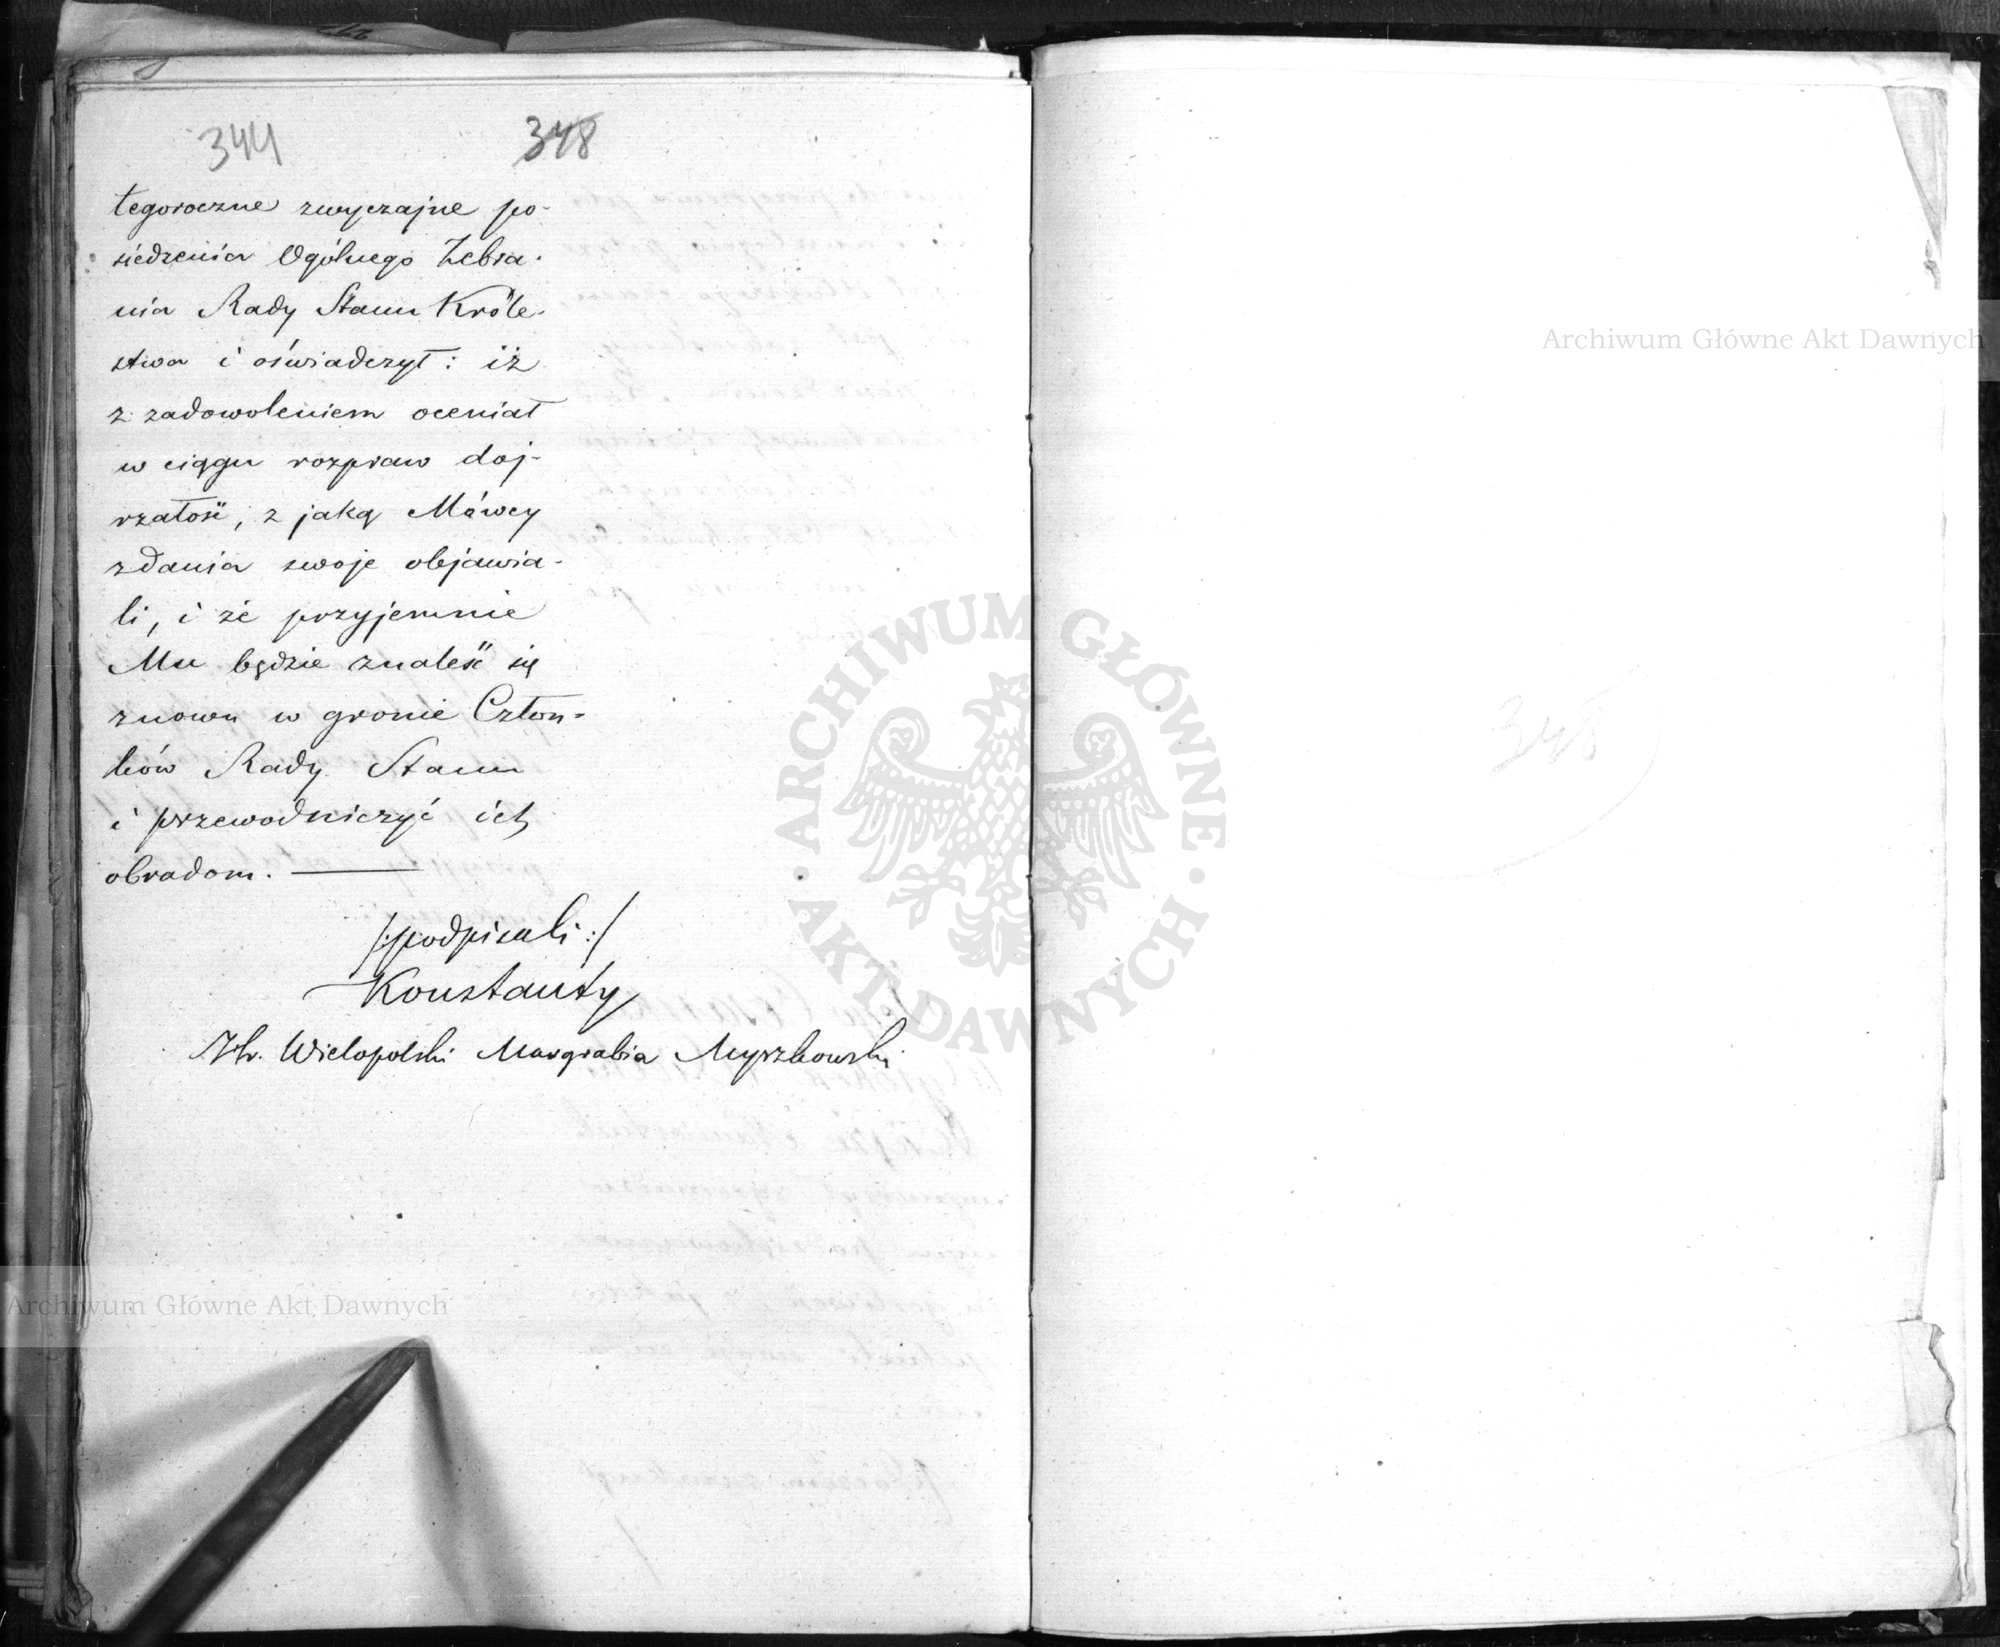 344 348
tegoroczne zwyczajne po-
siedzenia Ogólnego Zebra-
nia Rady Stanu Króle-
stwa i oświadczył: iż
z zadowoleniem oceniał
w ciągu rozpraw doj-
rzałość, z jaką Mówcy
zdania swoje objawia-
li, i że przyjemnie
Mu będzie znaleść się
znowu w gronie Człon-
ków Rady Stanu
i przewodniczyć ich
obradom.
/:podpisali:/
Konstanty
Hr. Wielopolski Margrabia Myszkowski
348
ARCHIWUM GŁÓWNE AKT DAWNYCH
Archiwum Główne Akt Dawnych
Archiwum Główne Akt Dawnych